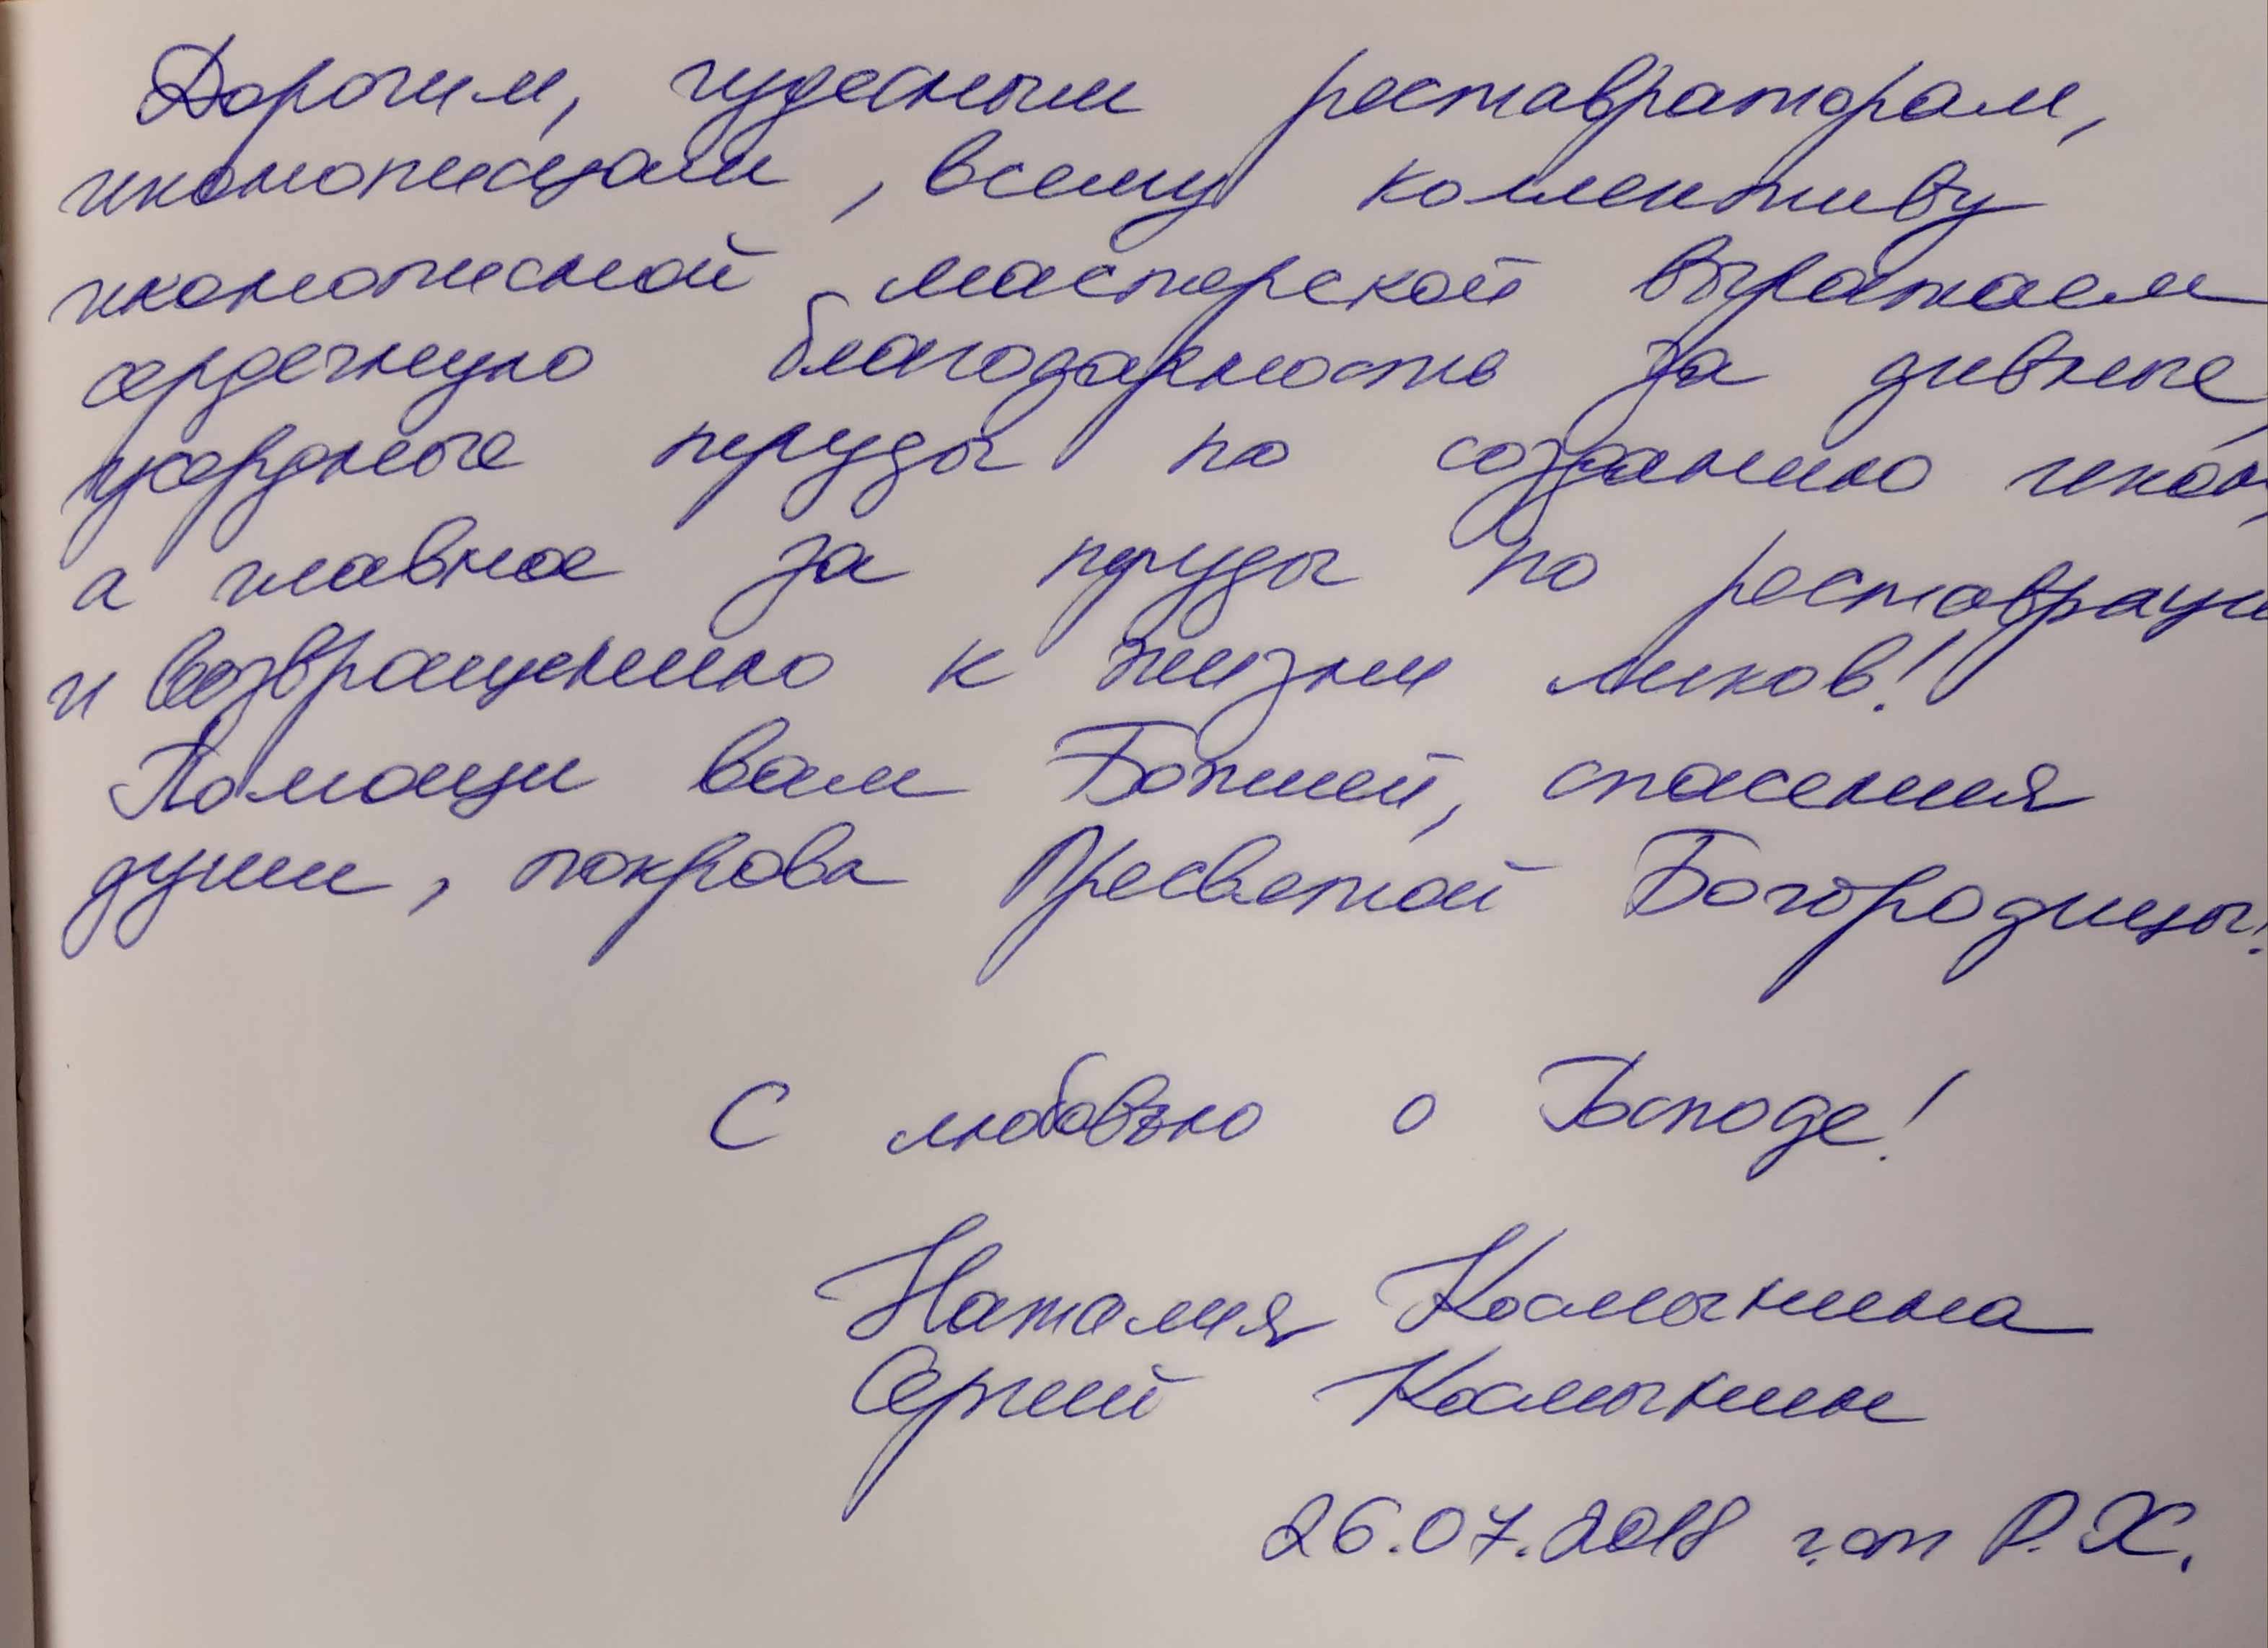 Дорогим, чудесным реставраторам,
иконописцам, всему коллективу
иконописной мастерской выражаем
сердечную благодарность за дивные,
усердные труды по созданию икон,
а главное за труды по реставраци
и возвращению к жизни ликов!
Помощи вам Божией, спасения
души, покрова Пресветой Богородицы!
С любовью о Господе!
Наталия
Сергий
26.07.2018 г. от Р.Х.